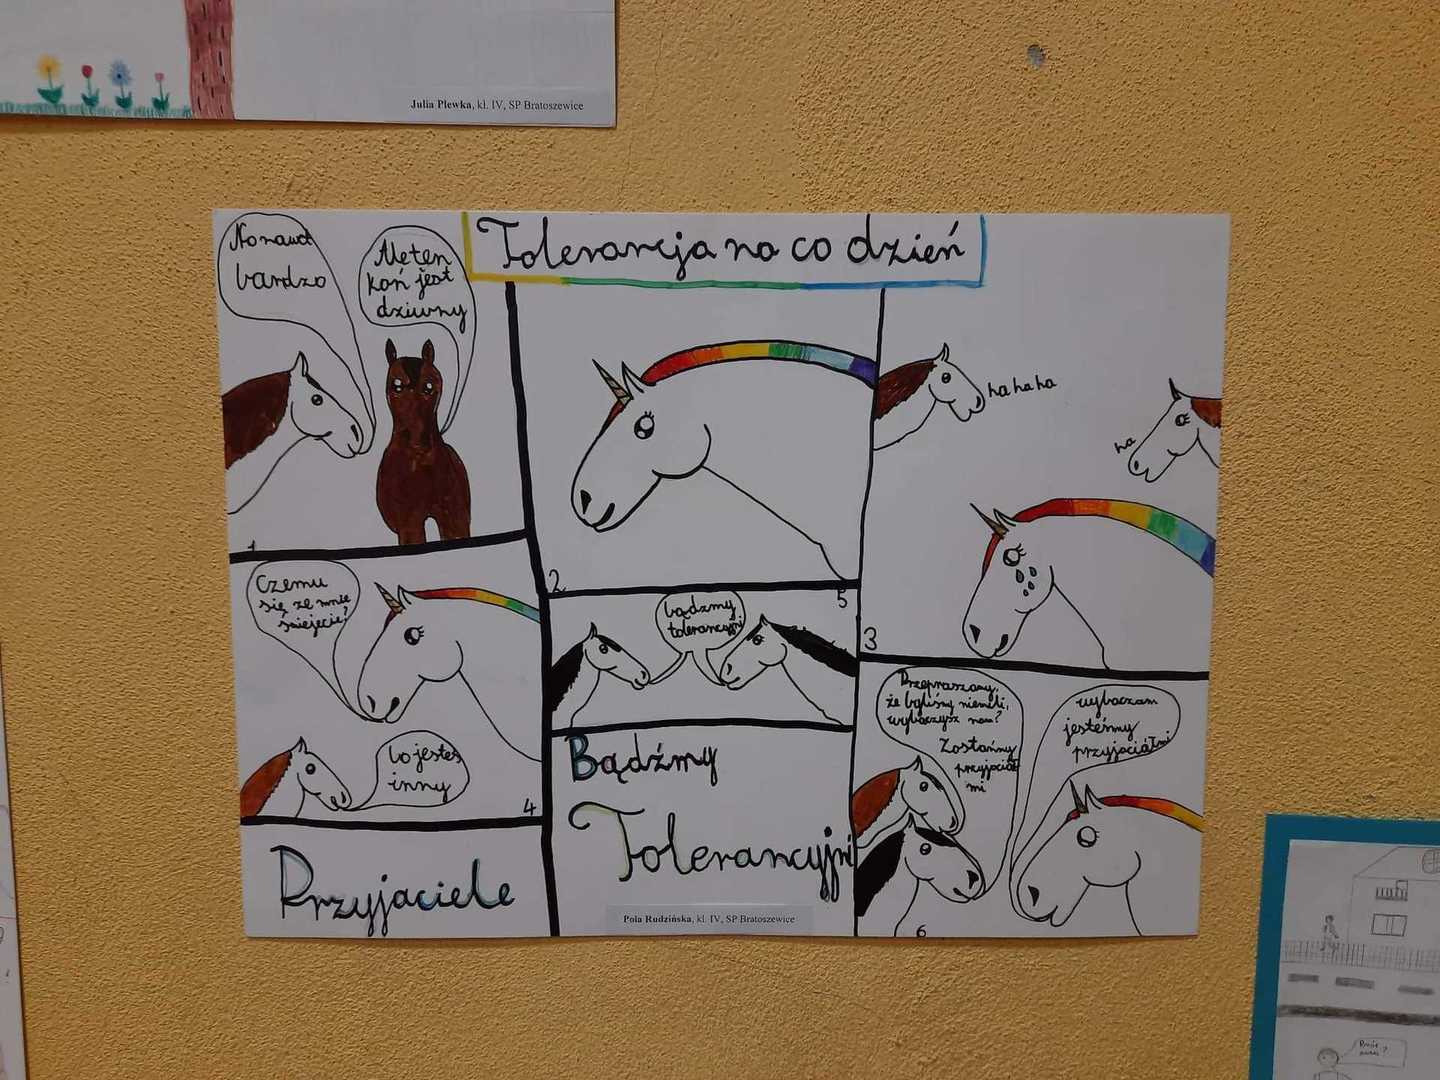 Julia Plewka, kl. IV, SP Bratoszewice
Tolerancja na co dzień
No nawet
bardzo
Ale ten
koń jest
dziwny
1
2
ha ha ha
ha
3
Czemu
się ze mnie
śmiejecie?
bo jesteś
inny
4
bądzmy
tolerancyjni
5
Przepraszamy,
że byliśmy niemili,
wybaczysz nam?
Zostańmy
przyjaciół
mi
wybaczam
jesteśmy
przyjaciółmi
6
Przyjaciele
Bądźmy
Tolerancyjni
Pola Rudzińska, kl. IV, SP Bratoszewice